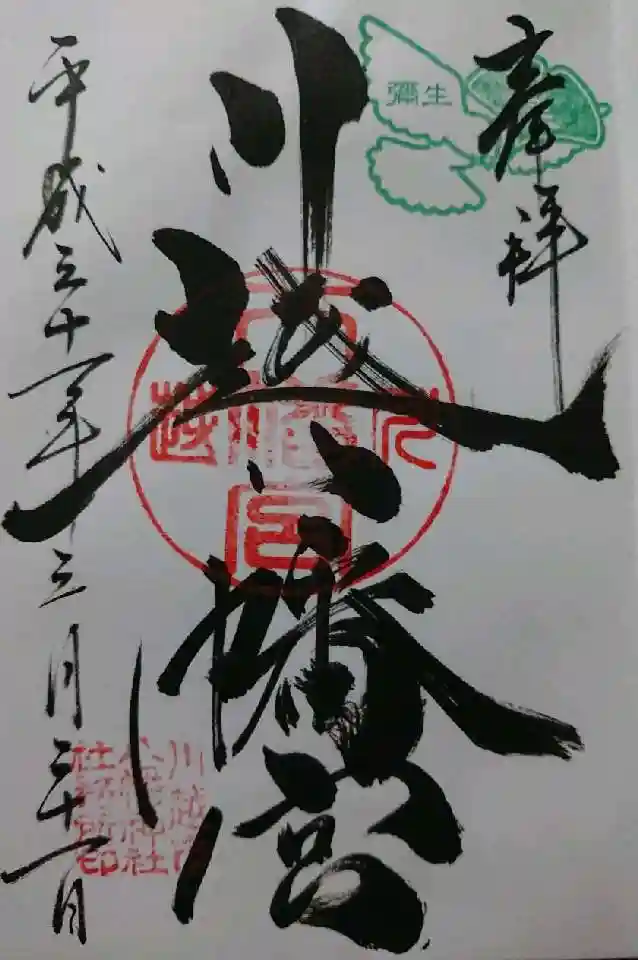 奉拝
彌生
川越八幡宮
平成三十一年三月三十一日
川越八幡
八幡神社
社務所印